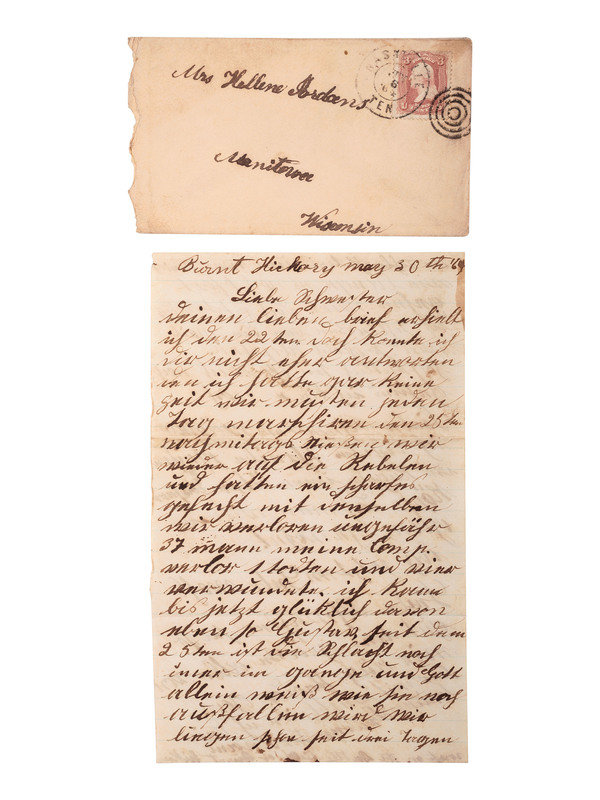 Mrs Hellene Jordans
NASHVILLE
6
TEN
3 3
Manitowoc
Wisconsin
Burnt Hickory may 30th 64
Liebe Schwester
deinen lieben brief erhielt
ich den 22ten doch konnte ich
dir nicht eher antworten
den ich hatte gar keine
zeit wir musten jeden
Tag marschiren den 25ten
nachmitags stießen wir
wieder auf die Rebelen
und hatten ein scharfes
gefecht mit denselben
wir verloren ungefähr
37 mann meine Comp.
verlor 1 todten und vier
verwundete. ich kam
bis jetzt glücklich davon
eben so Gustav seit dem
25ten ist die Schlacht noch
imer im gange und Gott
allein weiß wie sie noch
außfallen wird wir
liegen schon seit drei tagen